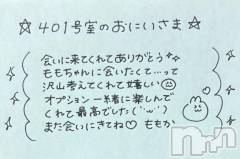 ☆ 401号室のおにいさま ☆
会いに来てくれてありがとう
ももちゃんに会いたくて...って
沢山考えてくれて嬉しい
オプション一緒に楽しんで
くれて最高でした(¨̮)
また会いにきてね♡ ももか